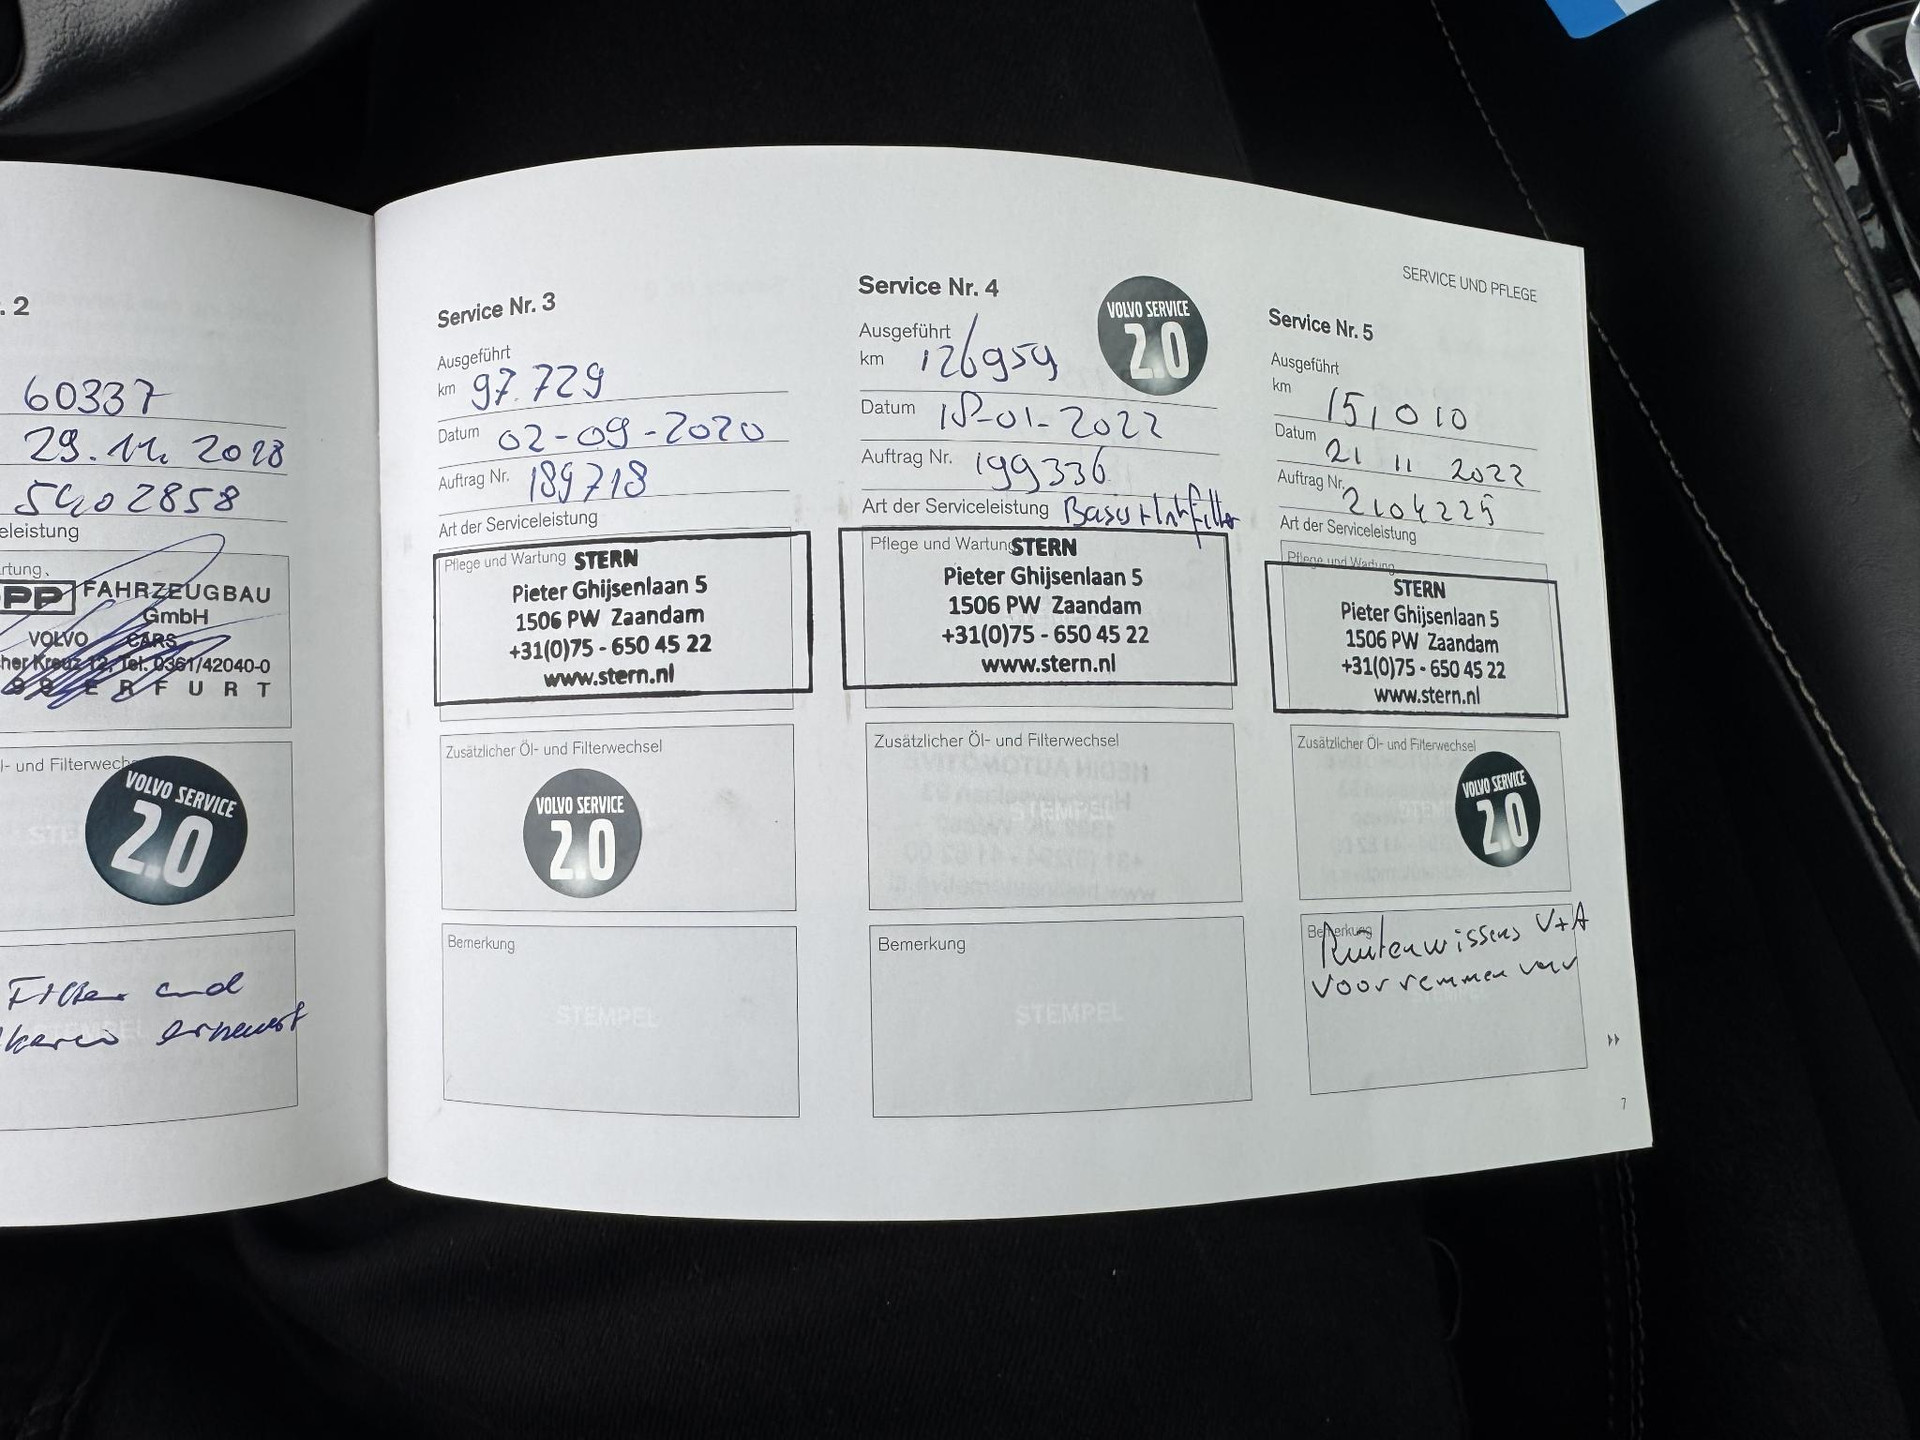 . 2
60337
29.11. 2018
5402858
eleistung
rtung,
PP FAHRZEUGBAU
GmbH
VOLVO CARS
her Kreuz 12, Tel. 0361/42040-0
99 ERFURT
l- und Filterwechs
VOLVO SERVICE
2.0
Filter und
erneuert
Service Nr. 3
Ausgeführt
km 97.729
Datum 02-09-2020
Auftrag Nr. 189718
Art der Serviceleistung
Pflege und Wartung STERN
Pieter Ghijsenlaan 5
1506 PW Zaandam
+31(0)75 - 650 45 22
www.stern.nl
Zusätzlicher Öl- und Filterwechsel
VOLVO SERVICE
2.0
Bemerkung
STEMPEL
Service Nr. 4
VOLVO SERVICE
2.0
Ausgeführt
km 126959
Datum 18-01-2022
Auftrag Nr. 199336
Art der Serviceleistung Basis + Intfilter
Pflege und Wartung STERN
Pieter Ghijsenlaan 5
1506 PW Zaandam
+31(0)75 - 650 45 22
www.stern.nl
Zusätzlicher Öl- und Filterwechsel
STEMPEL
Bemerkung
STEMPEL
SERVICE UND PFLEGE
Service Nr. 5
Ausgeführt
km 151010
Datum 21 11 2022
Auftrag Nr. 2104225
Art der Serviceleistung
Pflege und Wartung
STERN
Pieter Ghijsenlaan 5
1506 PW Zaandam
+31(0)75 - 650 45 22
www.stern.nl
Zusätzlicher Öl- und Filterwechsel
VOLVO SERVICE
2.0
Bemerkung
Ruitenwissers V+A
Voor remmen verv
7